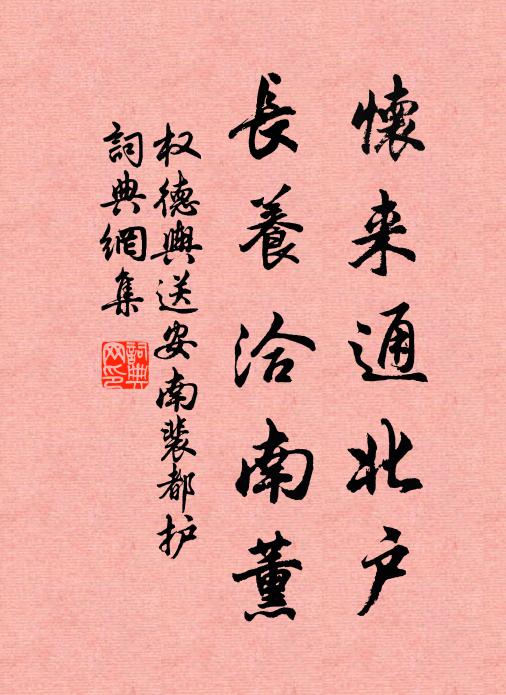 懷来通北户
長養洽南薰
权德輿送安南裴都护
詞典網集
詞典网印